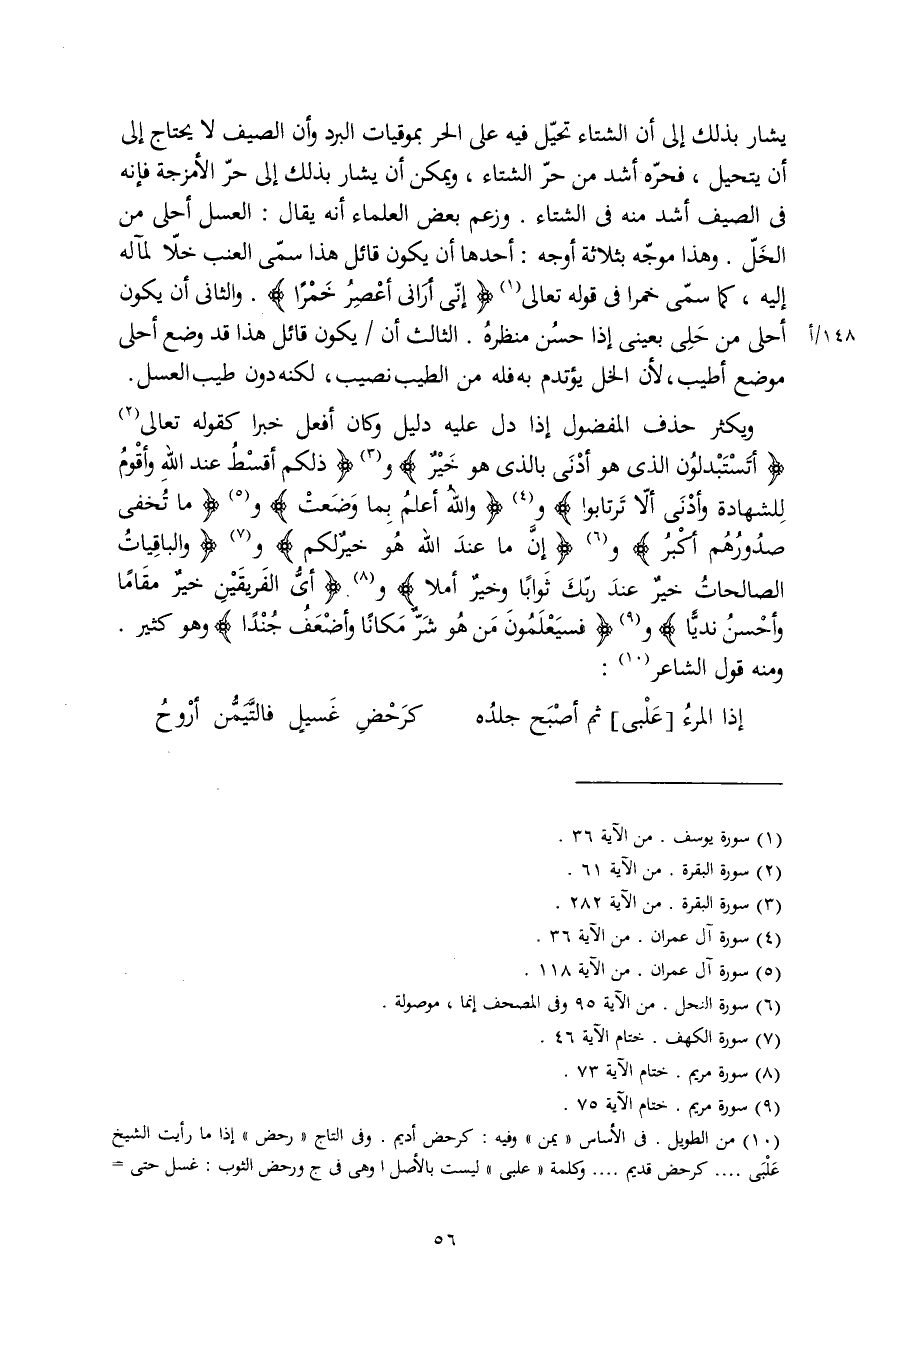 يشار بذلك إلى أن الشتاء تحيّل فيه على الحر بموقيات البرد وأن الصيف لا يحتاج إلى
أن يتحيل ، فحرّه أشد من حرّ الشتاء ، ويمكن أن يشار بذلك إلى حرّ الأمزجة فإنه
فى الصيف أشد منه فى الشتاء . وزعم بعض العلماء أنه يقال : العسل أحلى من
الخَلّ . وهذا موجّه بثلاثة أوجه : أحدها أن يكون قائل هذا سمّى العنب خلّا لمآله
إليه ، كما سمّى خمرا فى قوله تعالى(١) ﴿ إنّى أرَانى أعْصِرُ خَمْرًا ﴾ . والثانى أن يكون
١٤٨/أ أحلى من حَلِى بعينى إذا حسُن منظرهُ . الثالث أن / يكون قائل هذا قد وضع أحلى
موضع أطيب، لأن الخل يؤتدم به فله من الطيب نصيب، لكنه دون طيب العسل.
ويكثر حذف المفضول إذا دل عليه دليل وكان أفعل خبرا كقوله تعالى(٢)
﴿ أتَسْتَبْدلوُن الذى هو أدْنَى بالذى هو خَيْرٌ ﴾ و(٣) ﴿ ذلكم أقسْطُ عند اللهِ وأقْومُ
لِلشهادة وأدْنَى ألّا تَرتابوا ﴾ و(٤) ﴿ واللهُ أعلمُ بِما وَضَعتْ ﴾ و(٥) ﴿ ما تُخفى
صدُورُهُم أكْبرُ ﴾ و(٦) ﴿ إنَّ ما عندَ الله هُو خيرٌلكم ﴾ و(٧) ﴿ والباقِياتُ
الصالحاتُ خيرٌ عندَ ربّكَ ثَوابًا وخيرٌ أملا ﴾ و(٨) ﴿ أىُّ الفَريقَيْنِ خيرٌ مقَامًا
وأحْسنُ نديًّا ﴾ و(٩) ﴿ فسيَعْلَمُونَ مَن هُو شَرٌّ مَكانًا وأضْعَفُ جُنْدًا ﴾ وهو كثير .
ومنه قول الشاعر(١٠) :
إذا المرءُ [عَلْبى] ثم أصْبَح جلدُه كَرَحْضِ غَسيلٍ فالتَّيَمُّن أرْوحُ
(١) سورة يوسف . من الآية ٣٦ .
(٢) سورة البقرة . من الآية ٦١ .
(٣) سورة البقرة . من الآية ٢٨٢ .
(٤) سورة آل عمران . من الآية ٣٦ .
(٥) سورة آل عمران . من الآية ١١٨ .
(٦) سورة النحل . من الآية ٩٥ وفى المصحف إنما ، موصولة .
(٧) سورة الكهف . ختام الآية ٤٦ .
(٨) سورة مريم . ختام الآية ٧٣ .
(٩) سورة مريم . ختام الآية ٧٥ .
(١٠) من الطويل . فى الأساس « يمن » وفيه : كرحض أديم . وفى التاج « رحض » إذا ما رأيت الشيخ
عَلْبَى .... كرحض قديم .... وكلمة « علبى » ليست بالأصل ا وهى فى ج ورحض الثوب : غسل حتى =
٥٦